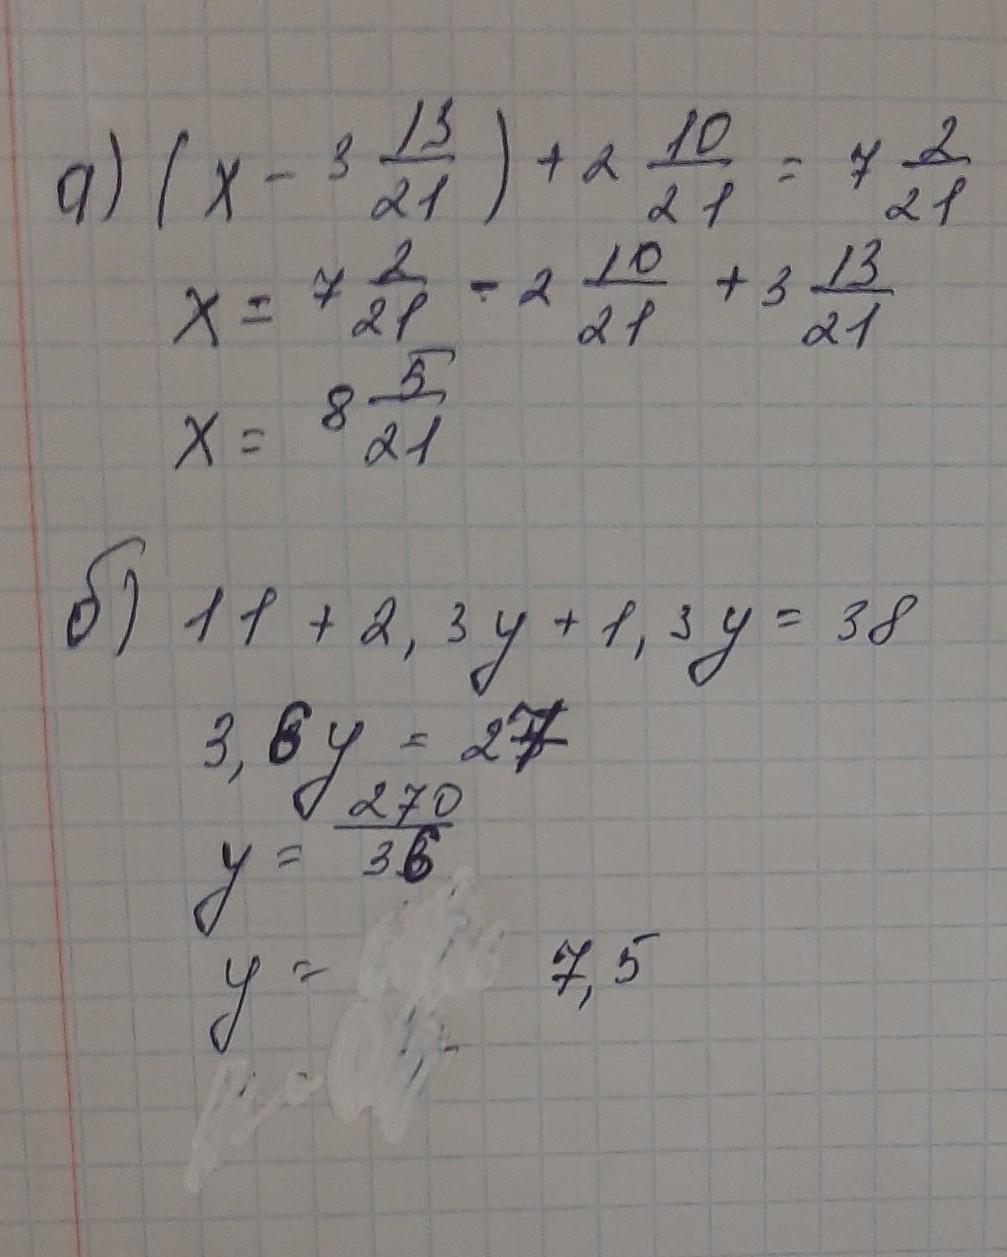 а) (x - 3 13/21) + 2 10/21 = 7 2/21
x = 7 2/21 - 2 10/21 + 3 13/21
x = 8 5/21
б) 11 + 2,3y + 1,3y = 38
3,6y = 27
y = 270/36
y = 7,5